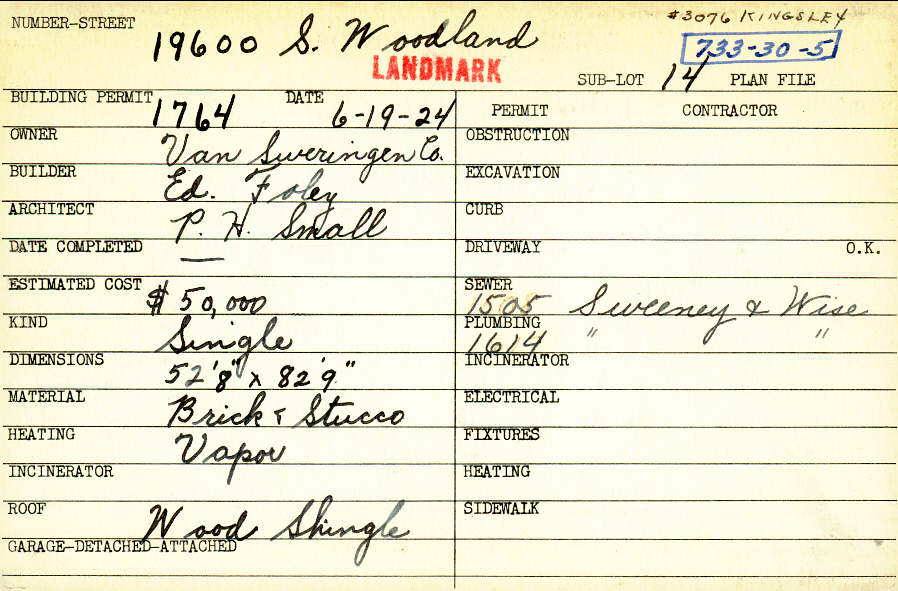 #3076 KINGSLEY
NUMBER-STREET 19600 S. Woodland 733-30-5
LANDMARK
SUB-LOT 14 PLAN FILE
BUILDING PERMIT 1764 DATE 6-19-24
OWNER Van Sweringen Co.
BUILDER Ed. Foley
ARCHITECT P. H. Small
DATE COMPLETED —
ESTIMATED COST $50,000
KIND Single
DIMENSIONS 52'8" x 82'9"
MATERIAL Brick & Stucco
HEATING Vapor
INCINERATOR
ROOF Wood Shingle
GARAGE-DETACHED-ATTACHED
PERMIT CONTRACTOR
OBSTRUCTION
EXCAVATION
CURB
DRIVEWAY O.K.
SEWER 1505 Sweeney & Wise
PLUMBING 1614 " "
INCINERATOR
ELECTRICAL
FIXTURES
HEATING
SIDEWALK